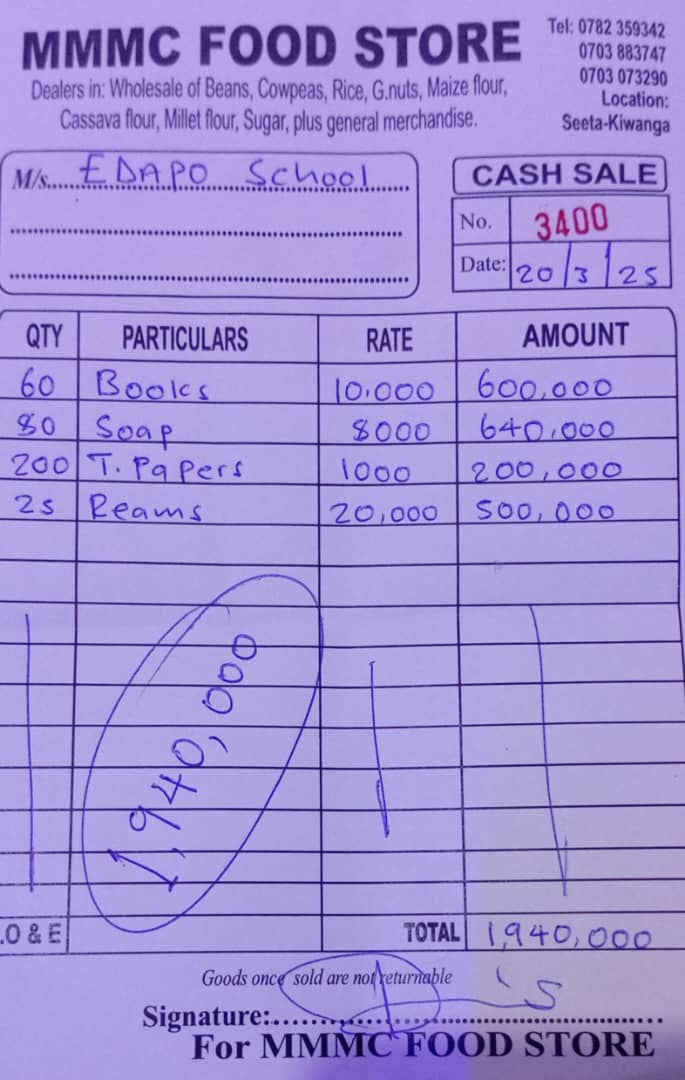 MMMC FOOD STORE
Tel: 0782 359342
0703 883747
0703 073290
Location:
Seeta-Kiwanga
Dealers in: Wholesale of Beans, Cowpeas, Rice, G.nuts, Maize flour,
Cassava flour, Millet flour, Sugar, plus general merchandise.
M/s. EDAPO School
CASH SALE
No. 3400
Date: 20/3/25
QTY PARTICULARS RATE AMOUNT
60 Books 10.000 600,000
80 Soap 8000 640,000
200 T. Papers 1000 200,000
25 Reams 20,000 500,000
1,940,000
.O & E TOTAL 1,940,000
Goods once sold are not returnable
Signature:
For MMMC FOOD STORE